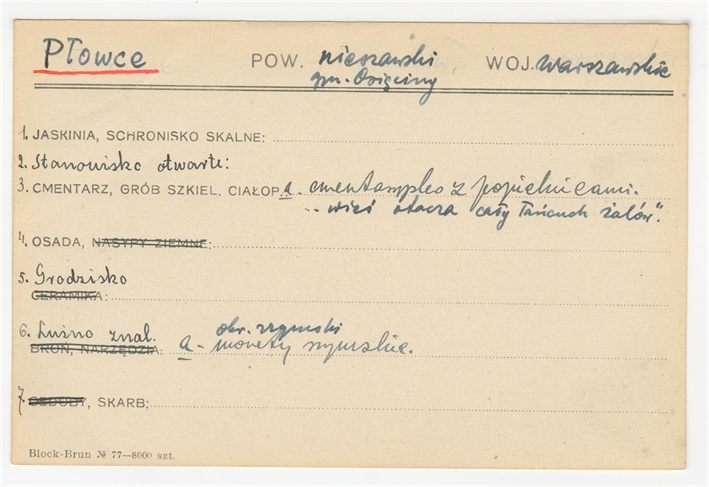 Płowce POW. nieszawski WOJ. warszawskie
gm. Osięciny
1. JASKINIA, SCHRONISKO SKALNE:
2. Stanowisko otwarte:
3. CMENTARZ, GRÓB SZKIEL. CIAŁOP. a - cmentarzysko z popielnicami.
„wieś otacza cały łańcuch żalów”.
4. OSADA, NASYPY ZIEMNE:
5. Grodzisko
CERAMIKA:
6. Luźno znal. okr. rzymski
BROŃ, NARZĘDZIA: a - monety rzymskie.
7. OZDOBY, SKARB:
Block-Brun № 77—8000 szt.